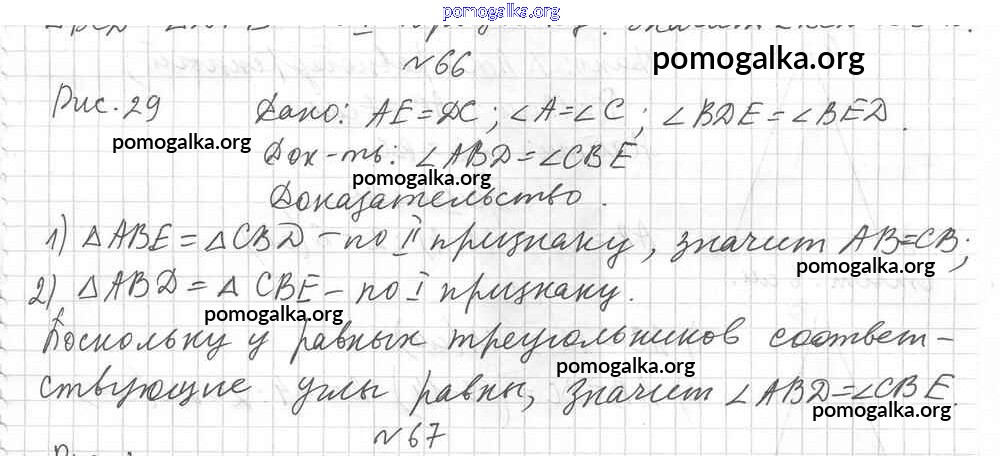 pomogalka.org
№66
pomogalka.org
Рис. 29 Дано: AE=DC; ∠A=∠C; ∠BDE=∠BED.
pomogalka.org
Док-ть: ∠ABD=∠CBE
pomogalka.org
Доказательство.
1) △ABE=△CBD – по II признаку, значит AB=CB;
pomogalka.org
2) △ABD=△CBE – по I признаку.
pomogalka.org
Поскольку у равных треугольников соответ-
pomogalka.org
ствующие углы равны, значит ∠ABD=∠CBE.
pomogalka.org
№67